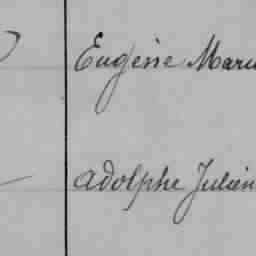 Eugène Marie
Adolphe Julien